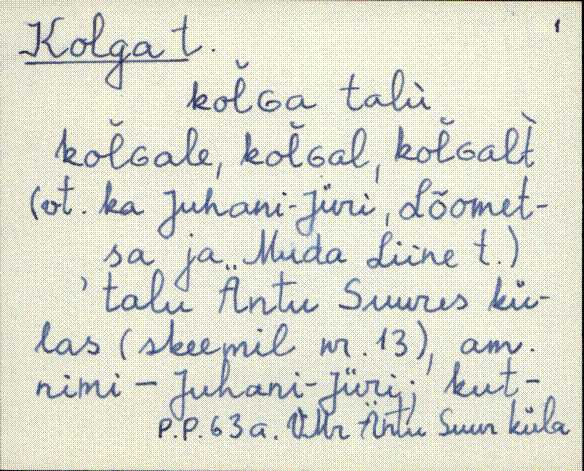 Kolga t. 1
kol̆ɢa talù
kol̆ɢale, kol̆ɢal, kol̆ɢalt̀
(vt. ka Juhani-Jüri, Lõomet-
sa ja Muda Liine t.)
' talu Äntu Suures kü-
las (skeemil nr. 13), am.
nimi - Juhani-Jüri; kut-
P.P. 63 a. VMr Äntu Suur küla